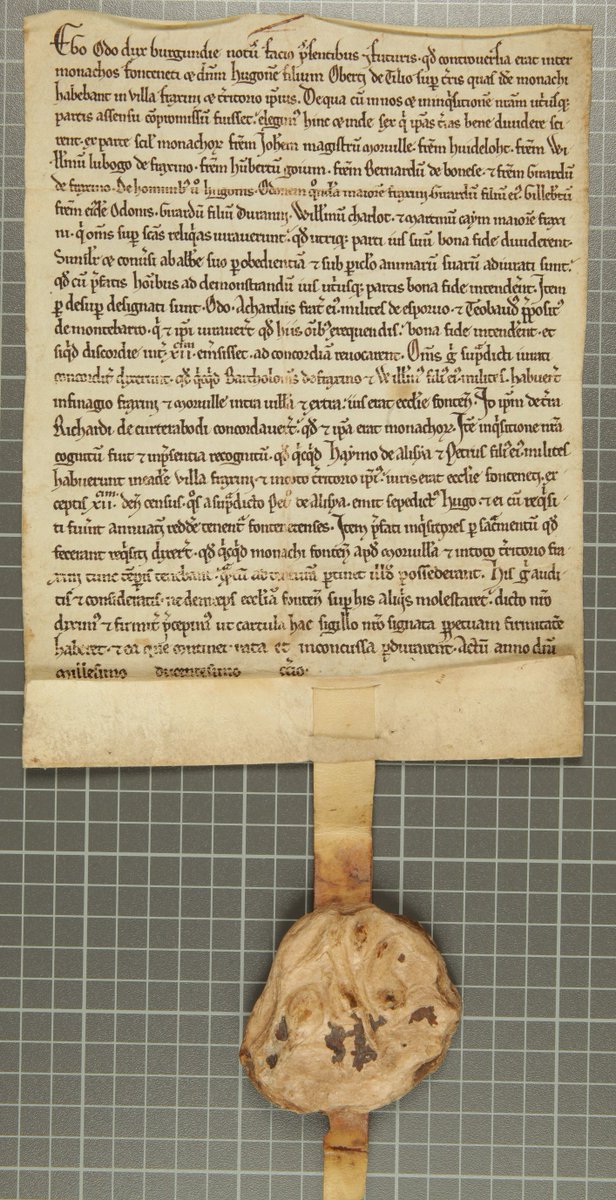 Ego Odo dux burgundie notū facio p̄sentibus ⁊ futuris. qd̓ controuersia erat inter
monachos fonteneti ⁊ dñm hugonē filium Oberti de Tilio sup t̄ris quas idē monachi
habebant in uilla fraxini ⁊ t̄ritorio ipsius. De qua cū in nos ⁊ in inq̓sitionē nr̄am utriusq;
partis assensu cōpromissum fuisset. elegim᷒ hinc ⁊ inde sex q̓ ip̄as t̄ras bene diuidere sci
rent. ex parte scil̓ monachoꝝ frēm Joh̓em magistrū moruille. frēm huidelōt. frēm Wi
llm̄u lubogo de fraxino. frēm hūbertū goium. frēm Bernardū de bonese. ⁊ frēm Guardū
de fraxino. De hominib᷒ ū hugonis. Odonem q̓ndā maiorē fraxini. Guardū filiū ei᷒. Gillebertū
frēm eiusdē Odonis. Guardū filiū Duranni. Will̓mū charlot. ⁊ martinū caym maiorē fraxi
ni. q̓ om̄s sup scās reliq̓as iurauerunt. qd̓ utriq; parti ius suū bona fide diuiderent.
Simil̓r ⁊ conu̓si ab abb̓e suo p̱ obedientiā ⁊ sub p̱ic̓lo animarū suarū adiurati sunt.
qd̓ cū p̄fatis hoīb᷒ ad demonstrandū ius utriusq; partis bona fide intenderēt. Item
p̱ desup̱ designati sunt. Odo. Achardus frat̓ ei᷒ milites de esporuo. ⁊ Teobaud᷒ p̄posit᷒
de montebarro. q̓ ⁊ ip̄i iurauer̄t qd̓ hiis oīb᷒ exequendis. bona fide intenderēt. et
siq̓d discordie int̓ em̓sisset. ad concordiā reuocarent. Om̄s g̓ sup̄dicti iurati
concordit̓ dixerunt. qd̓ q̓cq̓d Bartholom᷒ de fraxino ⁊ Will̓m᷒ fili᷒ ei᷒ milites. habuer̄t
in finagio fraxini ⁊ moruille intra uillā ⁊ extra. ius erat eccl̓ie fonteñ. Id ip̄m de t̄ra
Richardi de curterabodi concordauer̄t. qd̓ ⁊ ip̄a erat monachoꝝ. Itē inq̓sitione nr̄a
cognitū fuit ⁊ in p̄sentia recognitū. qd̓ q̓cq̓d Haymo de alisya ⁊ Petrus fili᷒ ei᷒ milites
habuerunt in eadē uilla fraxini ⁊ in toto t̄ritorio ip̄i᷒. iuris erat eccl̓ie fonteneti. ex
ceptis xii. deñ census. q̓s a sup̄dicto Pet̓ de alisya. emit sepedict᷒ hugo. ⁊ ei cū req̓si
ti fuer̄int annuatī redde tenent̓ fontenetenses. Item p̄fati inq̓sitores p̱ sac̓mentū qd̓
fecerant req̓siti dixer̄t. qd̓ q̓cq̓d monachi fonteñ apd̓ moruillā ⁊ in toto t̄ritorio fra
xini tunc tēp̱is tenebant. ad p̱tinet illd̓ possederant. His g̓ audi
tis ⁊ consideratis. ne deinceps eccl̓iam fonteñ sup̱ his aliq̓s molestaret. dicto nr̄o
diffiniui᷒ ⁊ firmit̓ p̄cepim᷒ ut cartula hac sigillo nr̄o signata p̱petuam firmitatē
haberet. ⁊ ea que continet rata et inconcussa p̱durarent. Actū anno dñi
millesimo ducentesimo t̄cio.